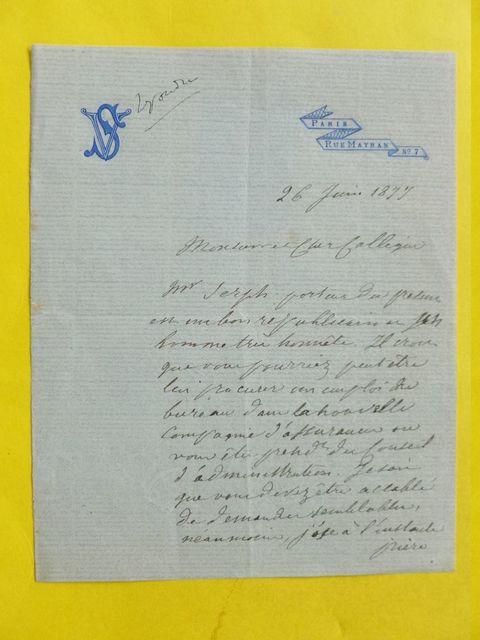 VS
Répondre
PARIS
RUE MAYRAN
No 7
26 Juin 1877
Monsieur et Cher Collègue
Mr porteur du présent
est un bon républicain et
homme très honnête. Il croit
que vous pourriez peut être
lui procurer un emploi de
bureau dans la nouvelle
Compagnie d'assurance où
vous êtes présidt du Conseil
d'administration. Je sais
que vous devez être accablé
de demandes semblables,
néanmoins, j'ose à l'instante
prière